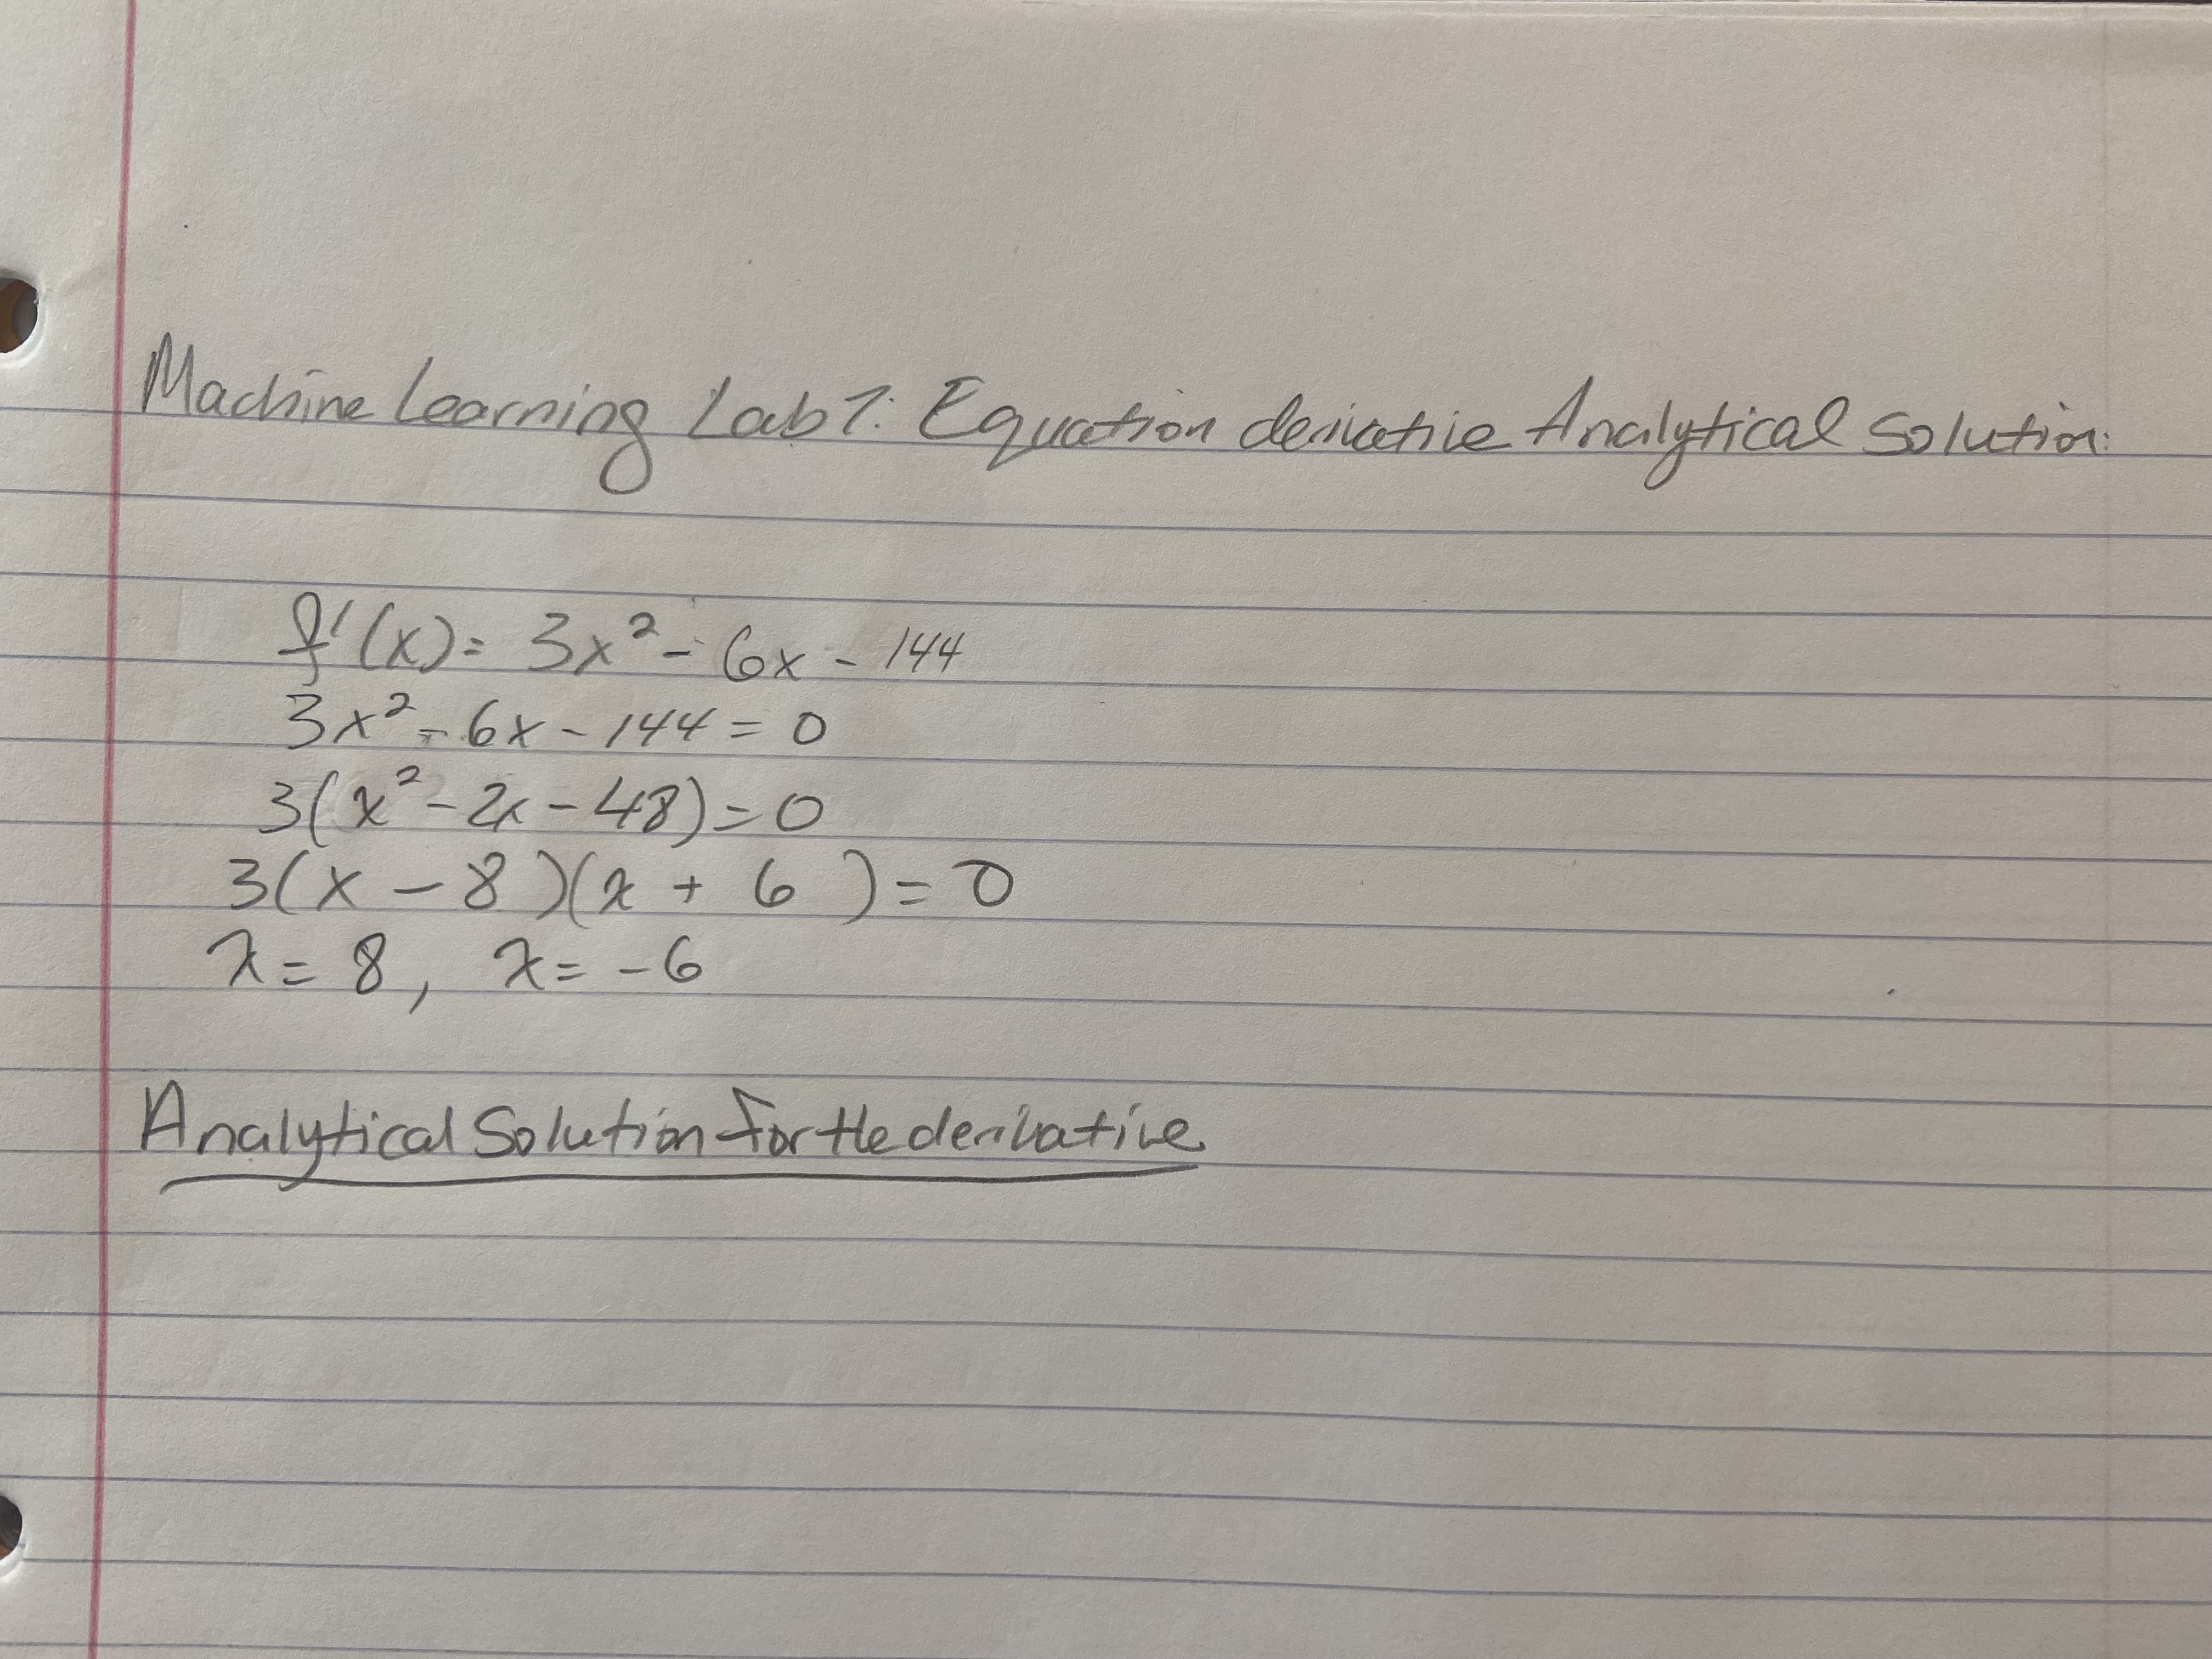 Machine Learning Lab 1: Equation derivative Analytical Solution:
f'(x) = 3x² - 6x - 144
3x² - 6x - 144 = 0
3(x² - 2x - 48) = 0
3(x - 8)(x + 6) = 0
x = 8, x = -6
Analytical Solution for the derivative